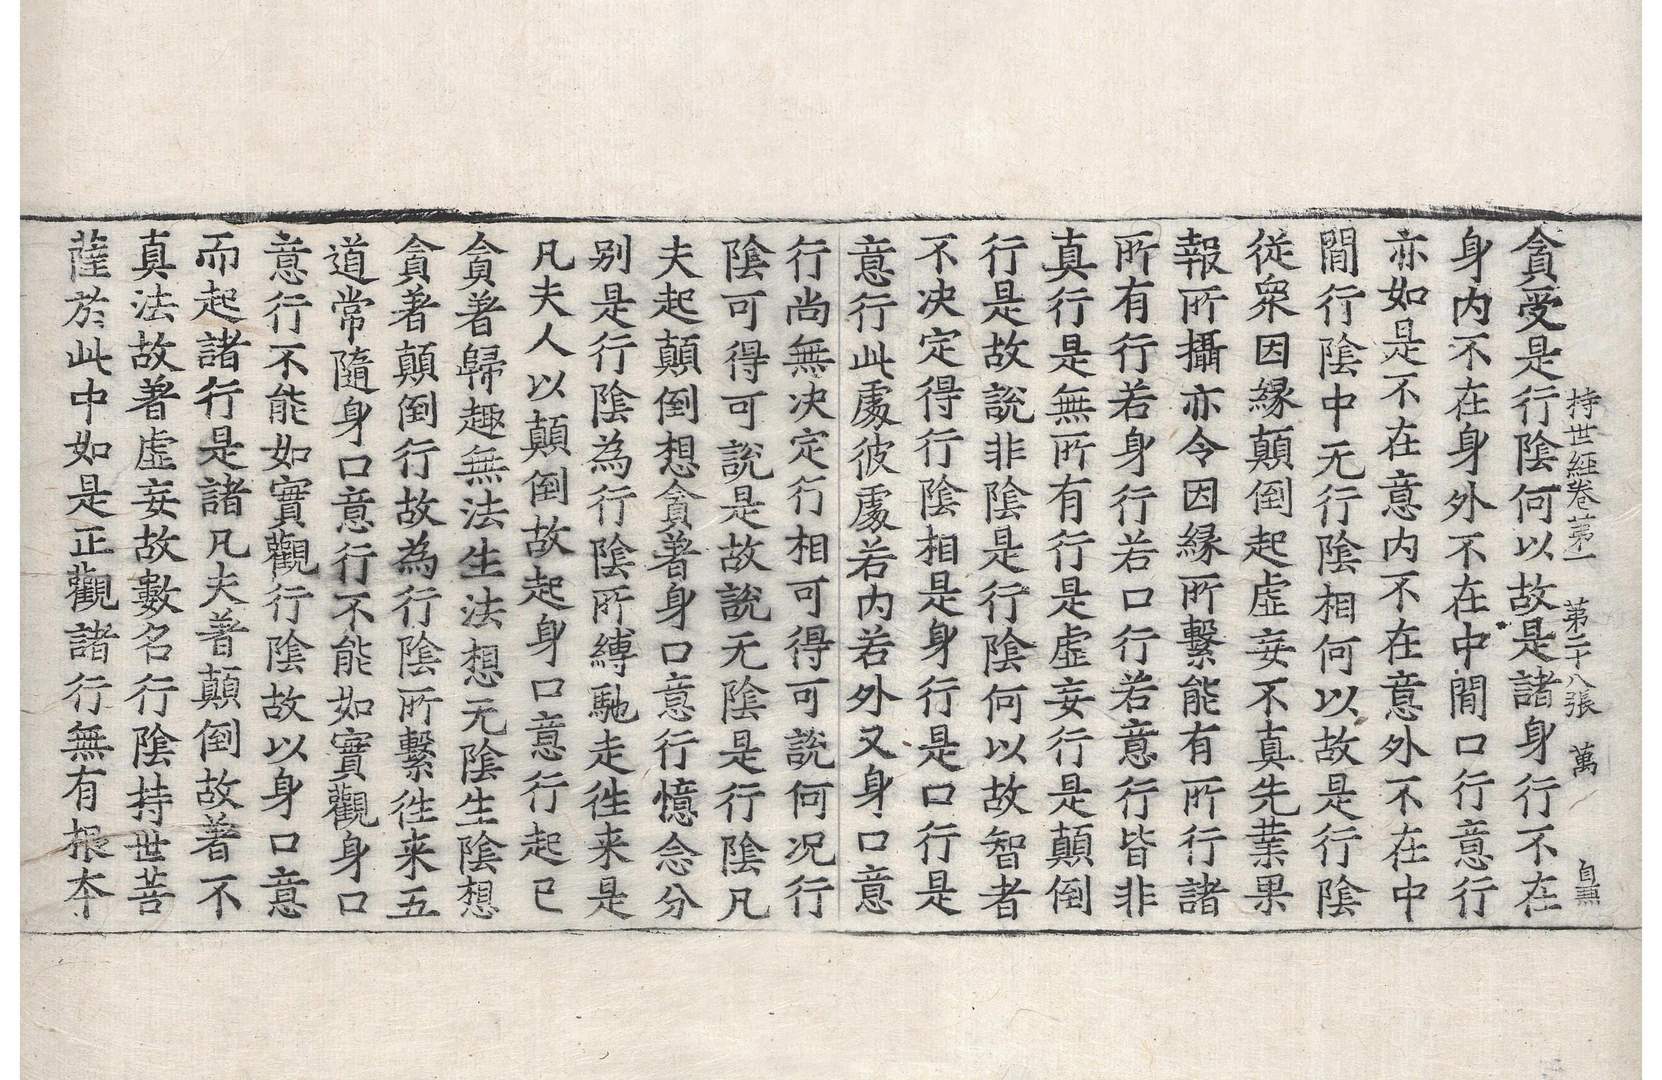 持世経卷苐一 第二十八張 萬 自無
貪受是行陰何以故是諸身行不在
身内不在身外不在中閒口行意行
亦如是不在意内不在意外不在中
閒行陰中无行陰相何以故是行陰
従衆因緣顛倒起虛妄不真先業果
報所攝亦令因緣所繫能有所行諸
所有行若身行若口行若意行皆非
真行是無所有行是虛妄行是顛倒
行是故說非陰是行陰何以故智者
不決定得行陰相是身行是口行是
意行此處彼處若内若外又身口意
行尚無決定行相可得可說何況行
陰可得可說是故說无陰是行陰凡
夫起顛倒想貪著身口意行憶念分
別是行陰為行陰所縛馳走徃来是
凡夫人以顛倒故起身口意行起已
貪著歸趣無法生法想无陰生陰想
貪著顛倒行故為行陰所繫徃来五
道常隨身口意行不能如實觀身口
意行不能如實觀行陰故以身口意
而起諸行是諸凡夫著顛倒故著不
真法故著虛妄故數名行陰持世菩
薩於此中如是正觀諸行無有根夲